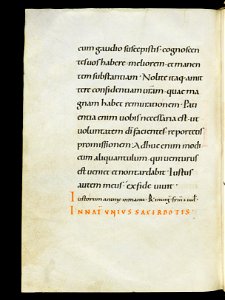 cum gaudio suscepistis· cognoscen
tes uos habere meliorem & manen
tem substantiam· Nolite itaq; amit
tere confidentiam uram· quae ma
gnam habet remunerationem· Pati
entia enim uobis necessaria est· ut
uoluntatem di facientes· reportetis
promissionem· Adhuc enim modi
cum aliquantulum· qui uenturus
est ueniet· & non tardabit· Iustus
autem meus· ex fide uiuit·
Iustorum anime
IN NAT UNIUS SACERDOTIS